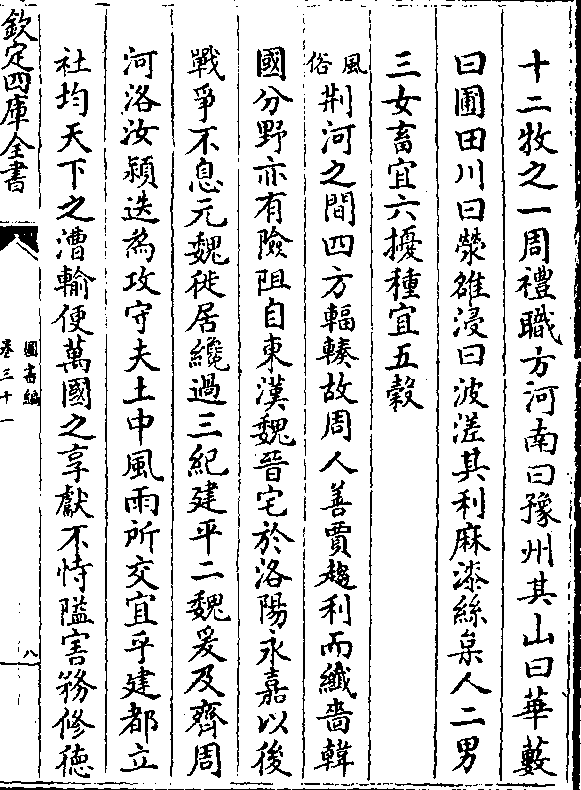 十二牧之一周禮職方河南曰豫州其山曰華藪
曰圃田川曰滎雒浸曰波溠其利麻漆絲枲人二男
三女畜宜六擾種宜五糓
風俗荆河之間四方輻輳故周人善賈趨利而纖嗇韓
國分野亦有險阻自東漢魏晉宅於洛陽永嘉以後
戰爭不息元魏徙居纔過三紀建平二魏爰及齊周
河洛汝潁迭為攻守夫土中風雨所交宜乎建都立
社均天下之漕輸便萬國之享獻不恃隘害務修德
欽定四庫全書
圖書編
卷三十一
八